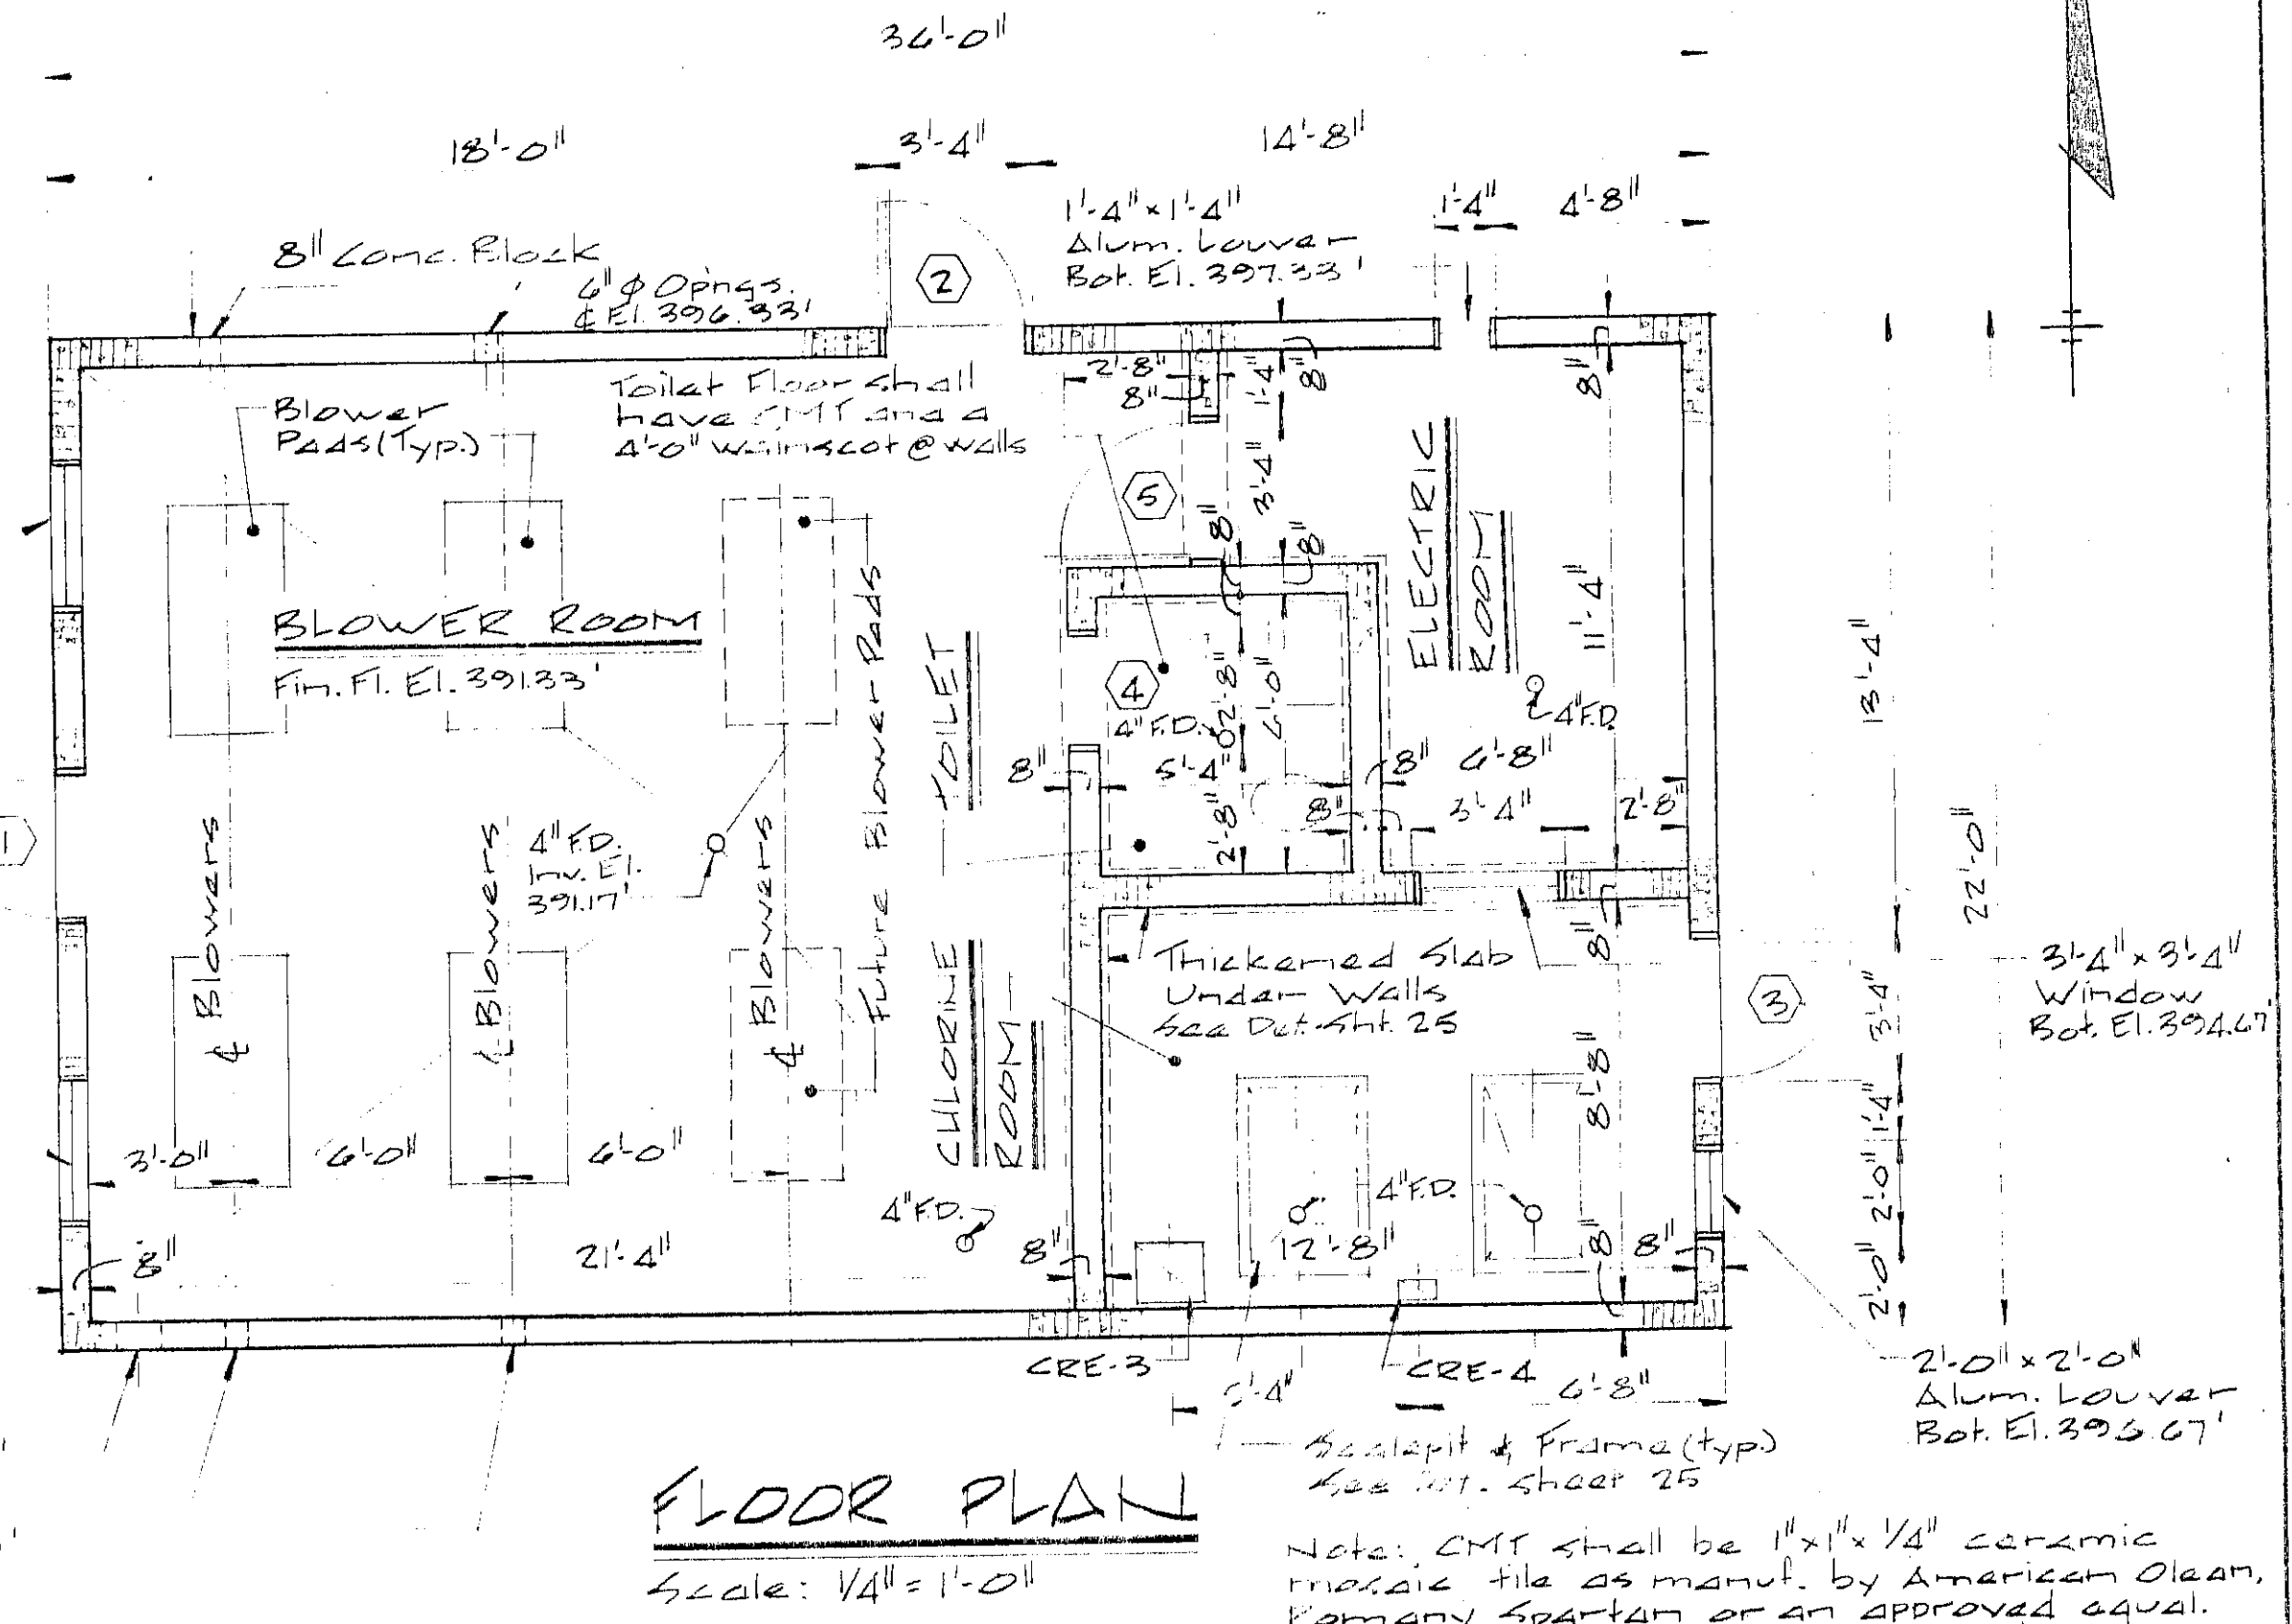 36'-0"
18'-0"
3'-4"
14'-8"
1'-4" x 1'-4"
Alum. Louver
Bot. El. 397.33'
1'-4"
4'-8"
8" Conc. Block
6" ϕ Opngs.
℄ El. 396.33'
2
Toilet Floor shall
have CMT and a
4'-0" Wainscot @ walls
Blower
Pads (Typ.)
2'-8"
8"
1'-4"
8"
8"
3'-4"
5
8"
8"
ELECTRIC
ROOM
11'-4"
BLOWER ROOM
Fin. Fl. El. 391.33'
Future Blower Pads
TOILET
4
4" F.D.
2'-8"
6'-0"
4" F.D.
8"
5'-4"
8"
6'-8"
2'-8"
8"
3'-4"
2'-8"
13'-4"
22'-0"
1
℄ Blowers
℄ Blowers
℄ Blowers
4" F.D.
Inv. El.
391.17'
CHLORINE
ROOM
Thickened Slab
Under Walls
See Det. Sht. 25
8"
3
3'-4" x 3'-4"
Window
Bot. El. 394.67'
3'-4"
8'-8"
1'-4"
2'-0"
2'-0"
3'-0"
6'-0"
6'-0"
4" F.D.
4" F.D.
8"
21'-4"
8"
12'-8"
8"
8"
CRE-3
CRE-4
6'-8"
2'-0" x 2'-0"
Alum. Louver
Bot. El.
Scalepit & Frame (typ.)
See sheet 25
FLOOR PLAN
Scale: 1/4" = 1'-0"
Note: CMT shall be 1" x 1" x 1/4" ceramic
mosaic tile as manuf. by American Olean,
Romany Spartan or an approved equal.